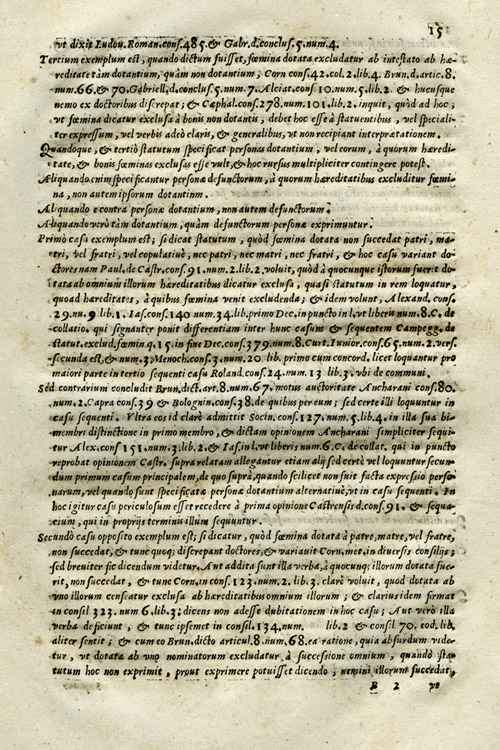 15
vt dixit Ludou. Roman. cons. 485. & Gabr. d. conclus. 5. num. 4.
Tertium exemplum est, quando dictum fuisset, fœmina dotata excludatur ab intestato ab hæ-
reditate tàm dotantium, quàm non dotantium, Corn cons. 42. col. 2. lib. 4. Brun. d. artic. 8.
num. 66. & 70. Gabriell. d. conclus. 5. num. 7. Alciat. cons. 10. num. 5. lib. 2. & hucusque
nemo ex doctoribus discrepat; & Cæphal. cons. 278. num. 101. lib. 2. inquit, quòd ad hoc;
vt fœmina dicatur exclusa à bonis non dotantis, debet hoc esse à statuentibus, vel speciali-
ter expressum, vel verbis adeò claris, & generalibus, vt non recipiant interprætationem.
Quandoque, & tertiò statutum specificat personas dotantium, vel eorum, à quorum hæredi-
tate, & bonis fœminas exclusas esse vult, & hoc rursus multipliciter contingere potest.
Aliquando enim specificantur personæ defunctorum, à quorum hæreditatibus excluditur fœmi-
na, non autem ipsorum dotantium.
Aliquando e contra personæ dotantium, non autem defunctorum.
Aliquando verò tàm dotantium, quàm defunctorum personæ exprimuntur.
Primo casu exemplum est; si dicat statutum, quòd fœmina dotata non succedat patri, ma-
tri, vel fratri, vel copulatiuè, nec patri, nec matri, nec fratri, & hoc casu variant do-
ctores nam Paul. de Castr. cons. 91. num. 2. lib. 2. voluit, quòd à quocunque istorum fuerit do-
tata ab omnium illorum hæreditatibus dicatur exclusa, quasi statutum in rem loquatur,
quoad hæreditates, à quibus fœmina venit excludenda; & idem volunt, Alexand. cons.
29. nu. 9 lib. 1. Ias. cons. 140 num. 34. lib. primo Dec. in puncto in l. vt liberis num. 8. C. de
collatio. qui segnanter ponit differentiam inter hunc casum & sequentem Campegg. de
statut. exclud. fœmin. q. 15 in fine Dec. cons. 379. num. 8. Curt. Iunior. cons. 65. num. 2. vers.
secunda est, & num. 3. Menoch. cons. 3. num. 20 lib. primo cum concord. licet loquantur pro
maiori parte in tertio sequenti casu Roland. cons. 24. num. 13 lib. 3. vbi de communi.
Sed contrarium concludit Brun. dict. art. 8. num. 67. motus auctoritate Ancharani cons. 80.
num. 2. Capra cons. 39 & Bolognin. cons. 38. de quibus per eum; sed certe illi loquuntur in
casu sequenti. Vltra eos id clarè admittit Socin. cons. 127. num. 5. lib. 4. in illa sua bi-
membri distinctione in primo membro, & dictam opinionem Ancharani simpliciter sequi-
tur Alex. cons. 151. num. 3. lib. 2. & Ias. in l. vt liberis num. 6. C. de collat. qui in puncto
reprobat opinionem Castr. supra relatam allegantur etiam alij sed certè vel loquuntur secun-
dum primum casum principalem, de quo suprà, quando scilicet non fuit facta expressio perso-
narum, vel quando sunt specificatæ personæ dotantium alternatiuè, vt in casu sequenti. In
hoc igitur casu periculosum esset recedere à prima opinione Castrensis d. cons. 91. & sequa-
cium, qui in proprijs terminis illum sequuntur.
Secundò casu opposito exemplum est; si dicatur, quòd fœmina dotata à patre, matre, vel fratre,
non succedat, & tunc quoq; discrepant doctores, & variauit Corn. met. in diuersis consilijs;
sed breuiter sic dicendum videtur. Aut addita sunt illa verba, à quocunq; illorum dotata fue-
rit, non succedat, & tunc Corn. in cons. 123. num. 2. lib. 3. clarè voluit, quod dotata ab
vno illorum censeatur exclusa ab hæreditatibus omnium illorum; & clarius idem firmat
in consil 323. num 6. lib. 3; dicens non adesse dubitationem in hoc casu; Aut verò illa
verba deficiunt, & tunc ipsemet in consil. 134. num. lib. 2 & consil. 70. eod. lib.
aliter sentit; & cum eo Brun. dicto articul. 8. num. 68. ea ratione, quia absurdum vide-
tur, vt dotata ab vno nominatorum excludatur à successione omnium, quandò sta-
tutum hoc non exprimit, prout exprimere potuisset dicendo, nemini illorum succedat,
B 2 vt